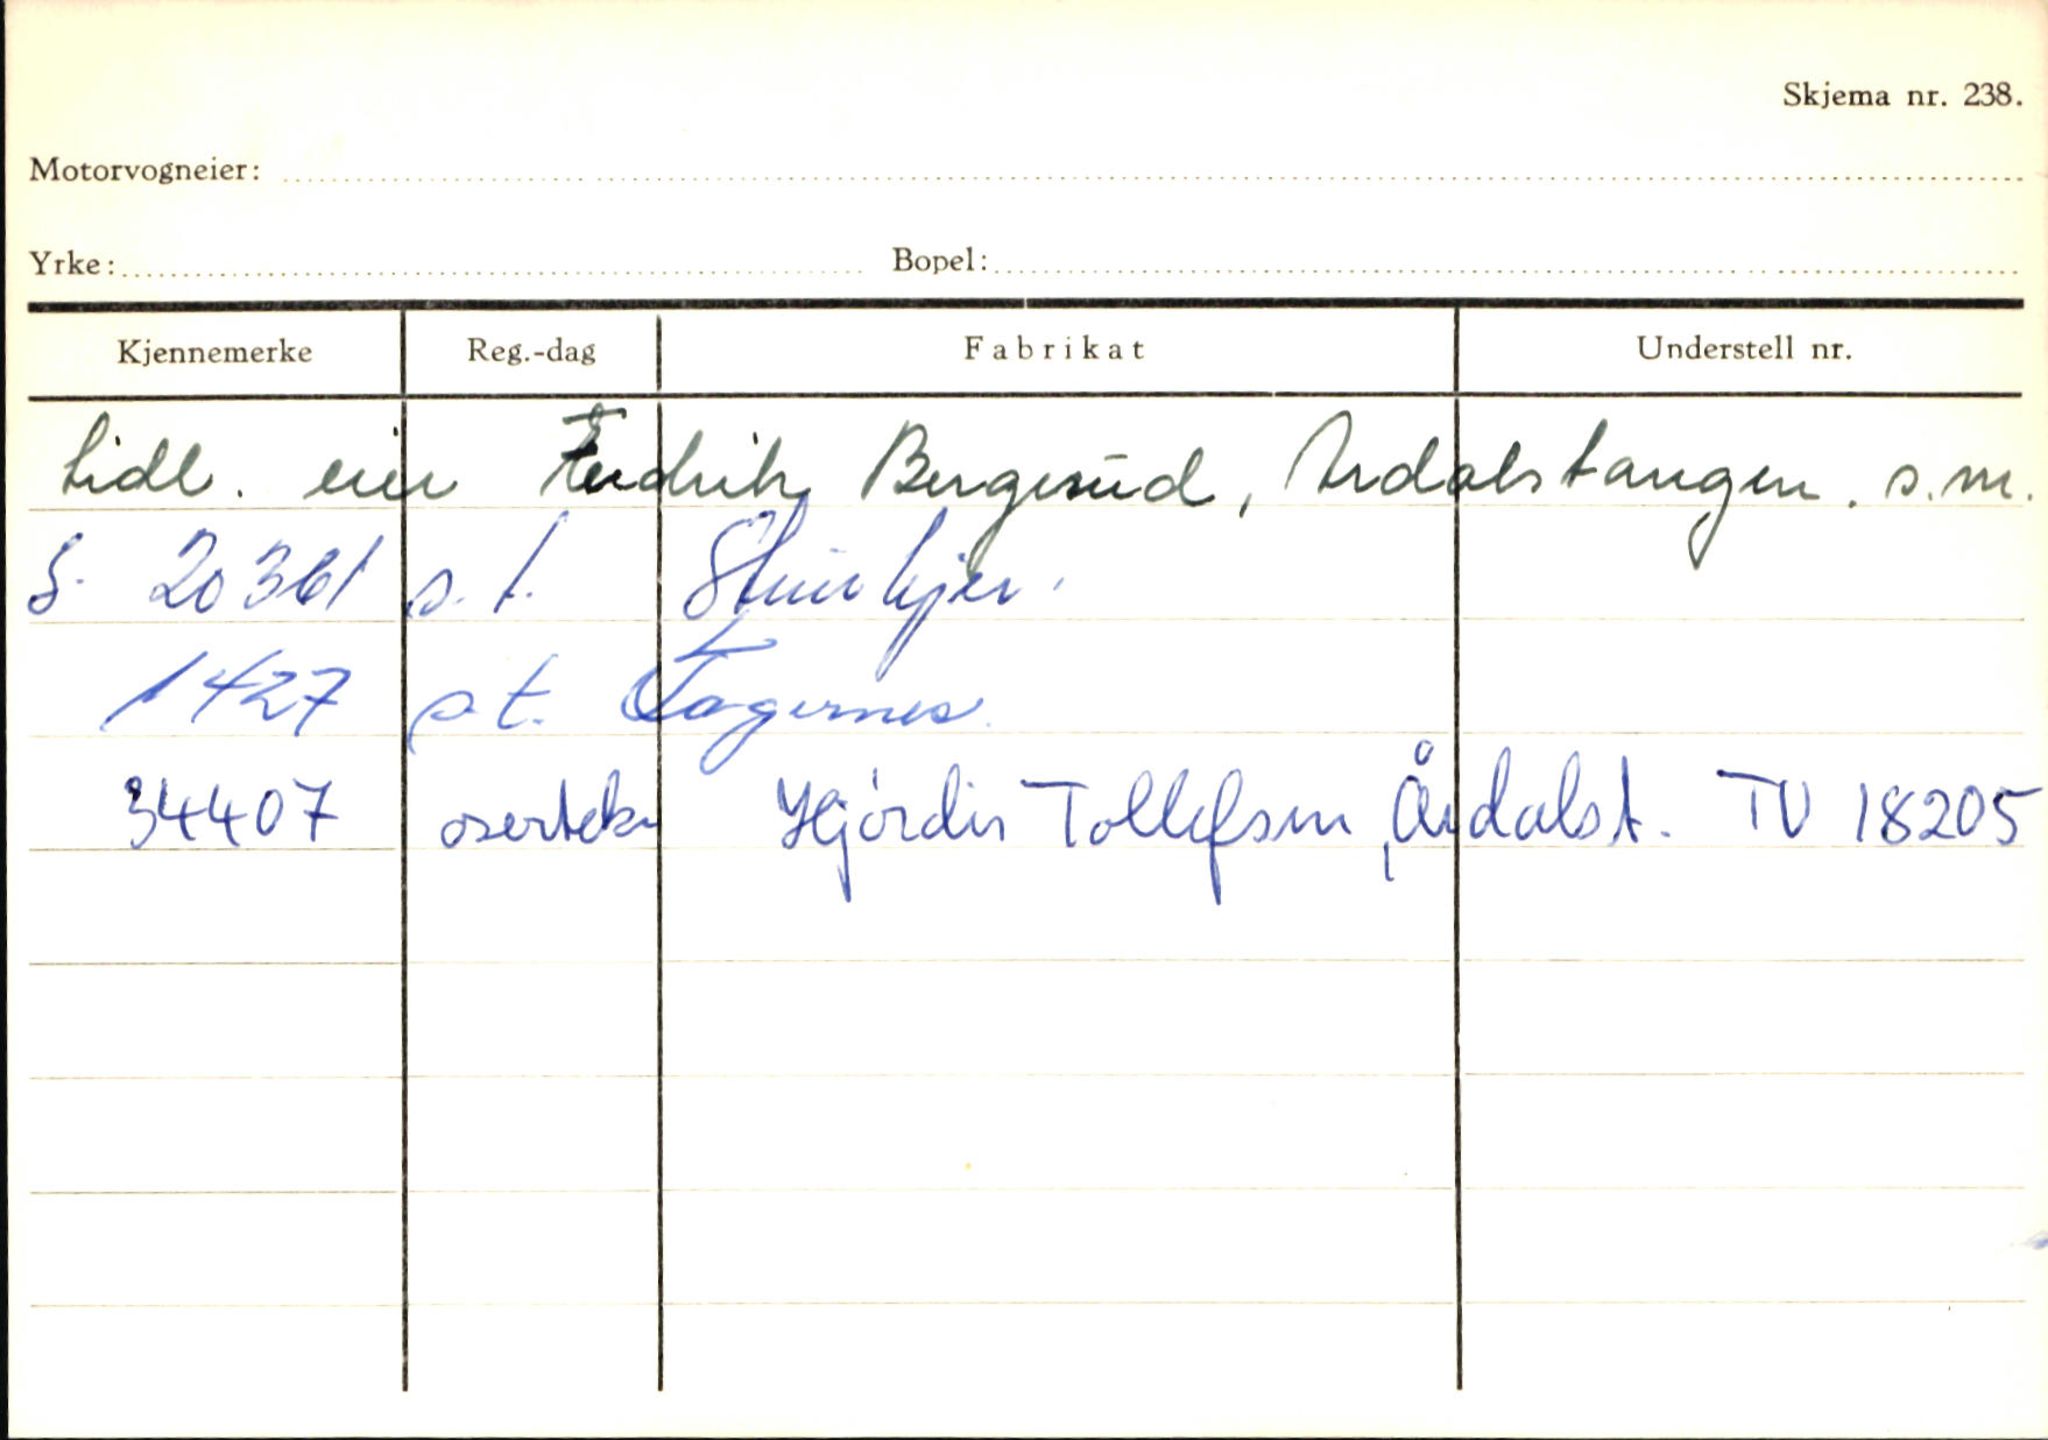 Skjema nr. 238.
Motorvogneier:
Yrke: Bopel:
Kjennemerke Reg.-dag Fabrikat Understell nr.
tidl. eier Fredrik Bergerud, Årdalstangen. s.m.
S. 20361 s.t. Steinkjer.
1427 s.t. Fagernes.
34407 Hjördis Tollefsen, Årdalst. TV 18205